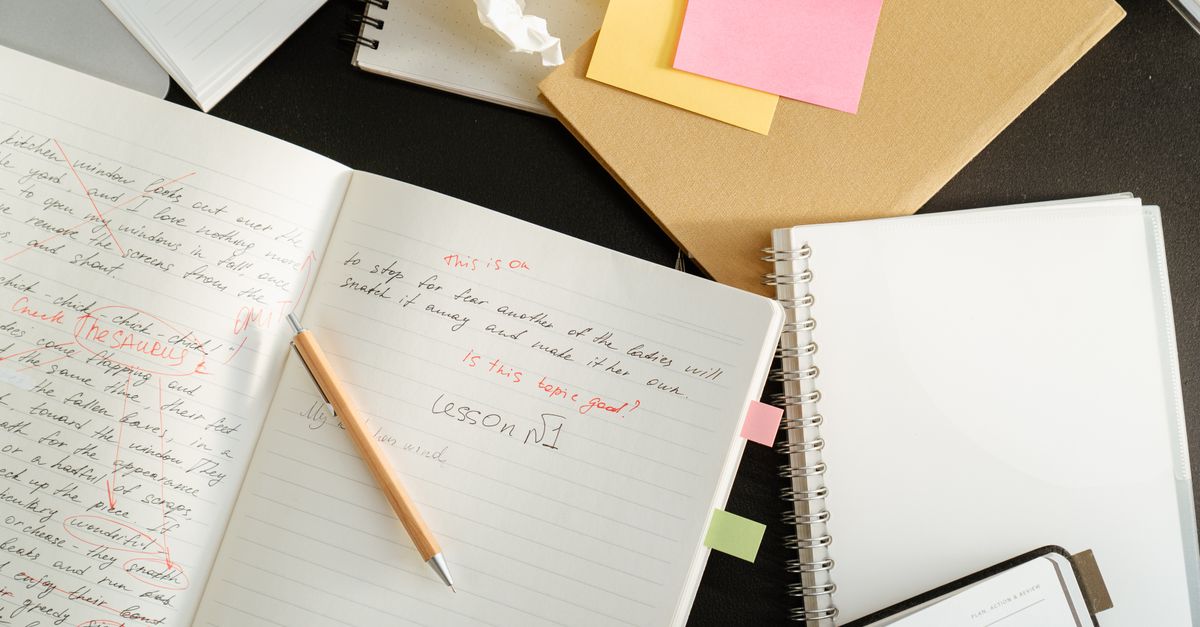 kitchen window looks out over the
yard, and I love nothing more
to open my windows in fall, once
remove the screens from the
and shout.
chick-chick-chick-chick!"
Check Thesaurus!
OMIT
come flapping and
the same time, their feet
the fallen leaves, in a
toward the window. They
for the appearance
or a handful of scraps,
up the piece. If
wonderful
or cheese - they snatch
and run
enjoy their
greedy
This is Ok
to stop for fear another of the ladies will
snatch it away and make it her own.
Is this topic good?
Lesson №1
My
PLAN, ACTION & REVIEW